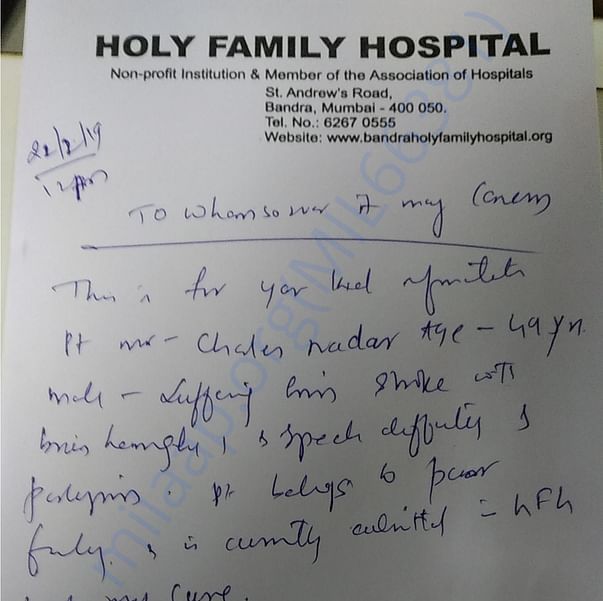 HOLY FAMILY HOSPITAL
Non-profit Institution & Member of the Association of Hospitals
St. Andrew's Road,
Bandra, Mumbai - 400 050.
Tel. No.: 6267 0555
Website: www.bandraholyfamilyhospital.org
22/2/19
12 pm
To Whomsoever It may Concern
This is for your kind
Pt mr - Charles nadar Age - 49 yr.
male - Suffering brain stroke with
brain , speech difficulty &
paralysis. Pt belongs to poor
family. & is currently admitted = HFH
my care.
milaap.org(MIL66381)